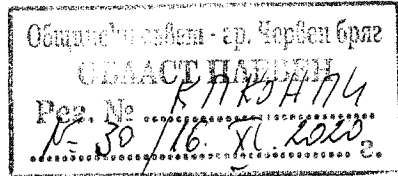 Общински съвет - гр. Червен бряг
ОБЛАСТ ПЛЕВЕН
Рег. № КПКОНПИ
№ 30 / 16. XI. 2020 г.